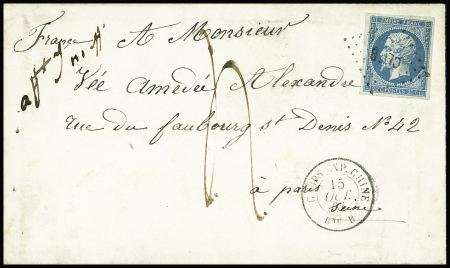 France
aff. insf.
A Monsieur
Vée Amédée Alexandre
rue du faubourg st Denis No 42
à paris
Seine
4
EMPIRE FRANC
CORPS EXP. CHINE
15
OCT.
BAU B